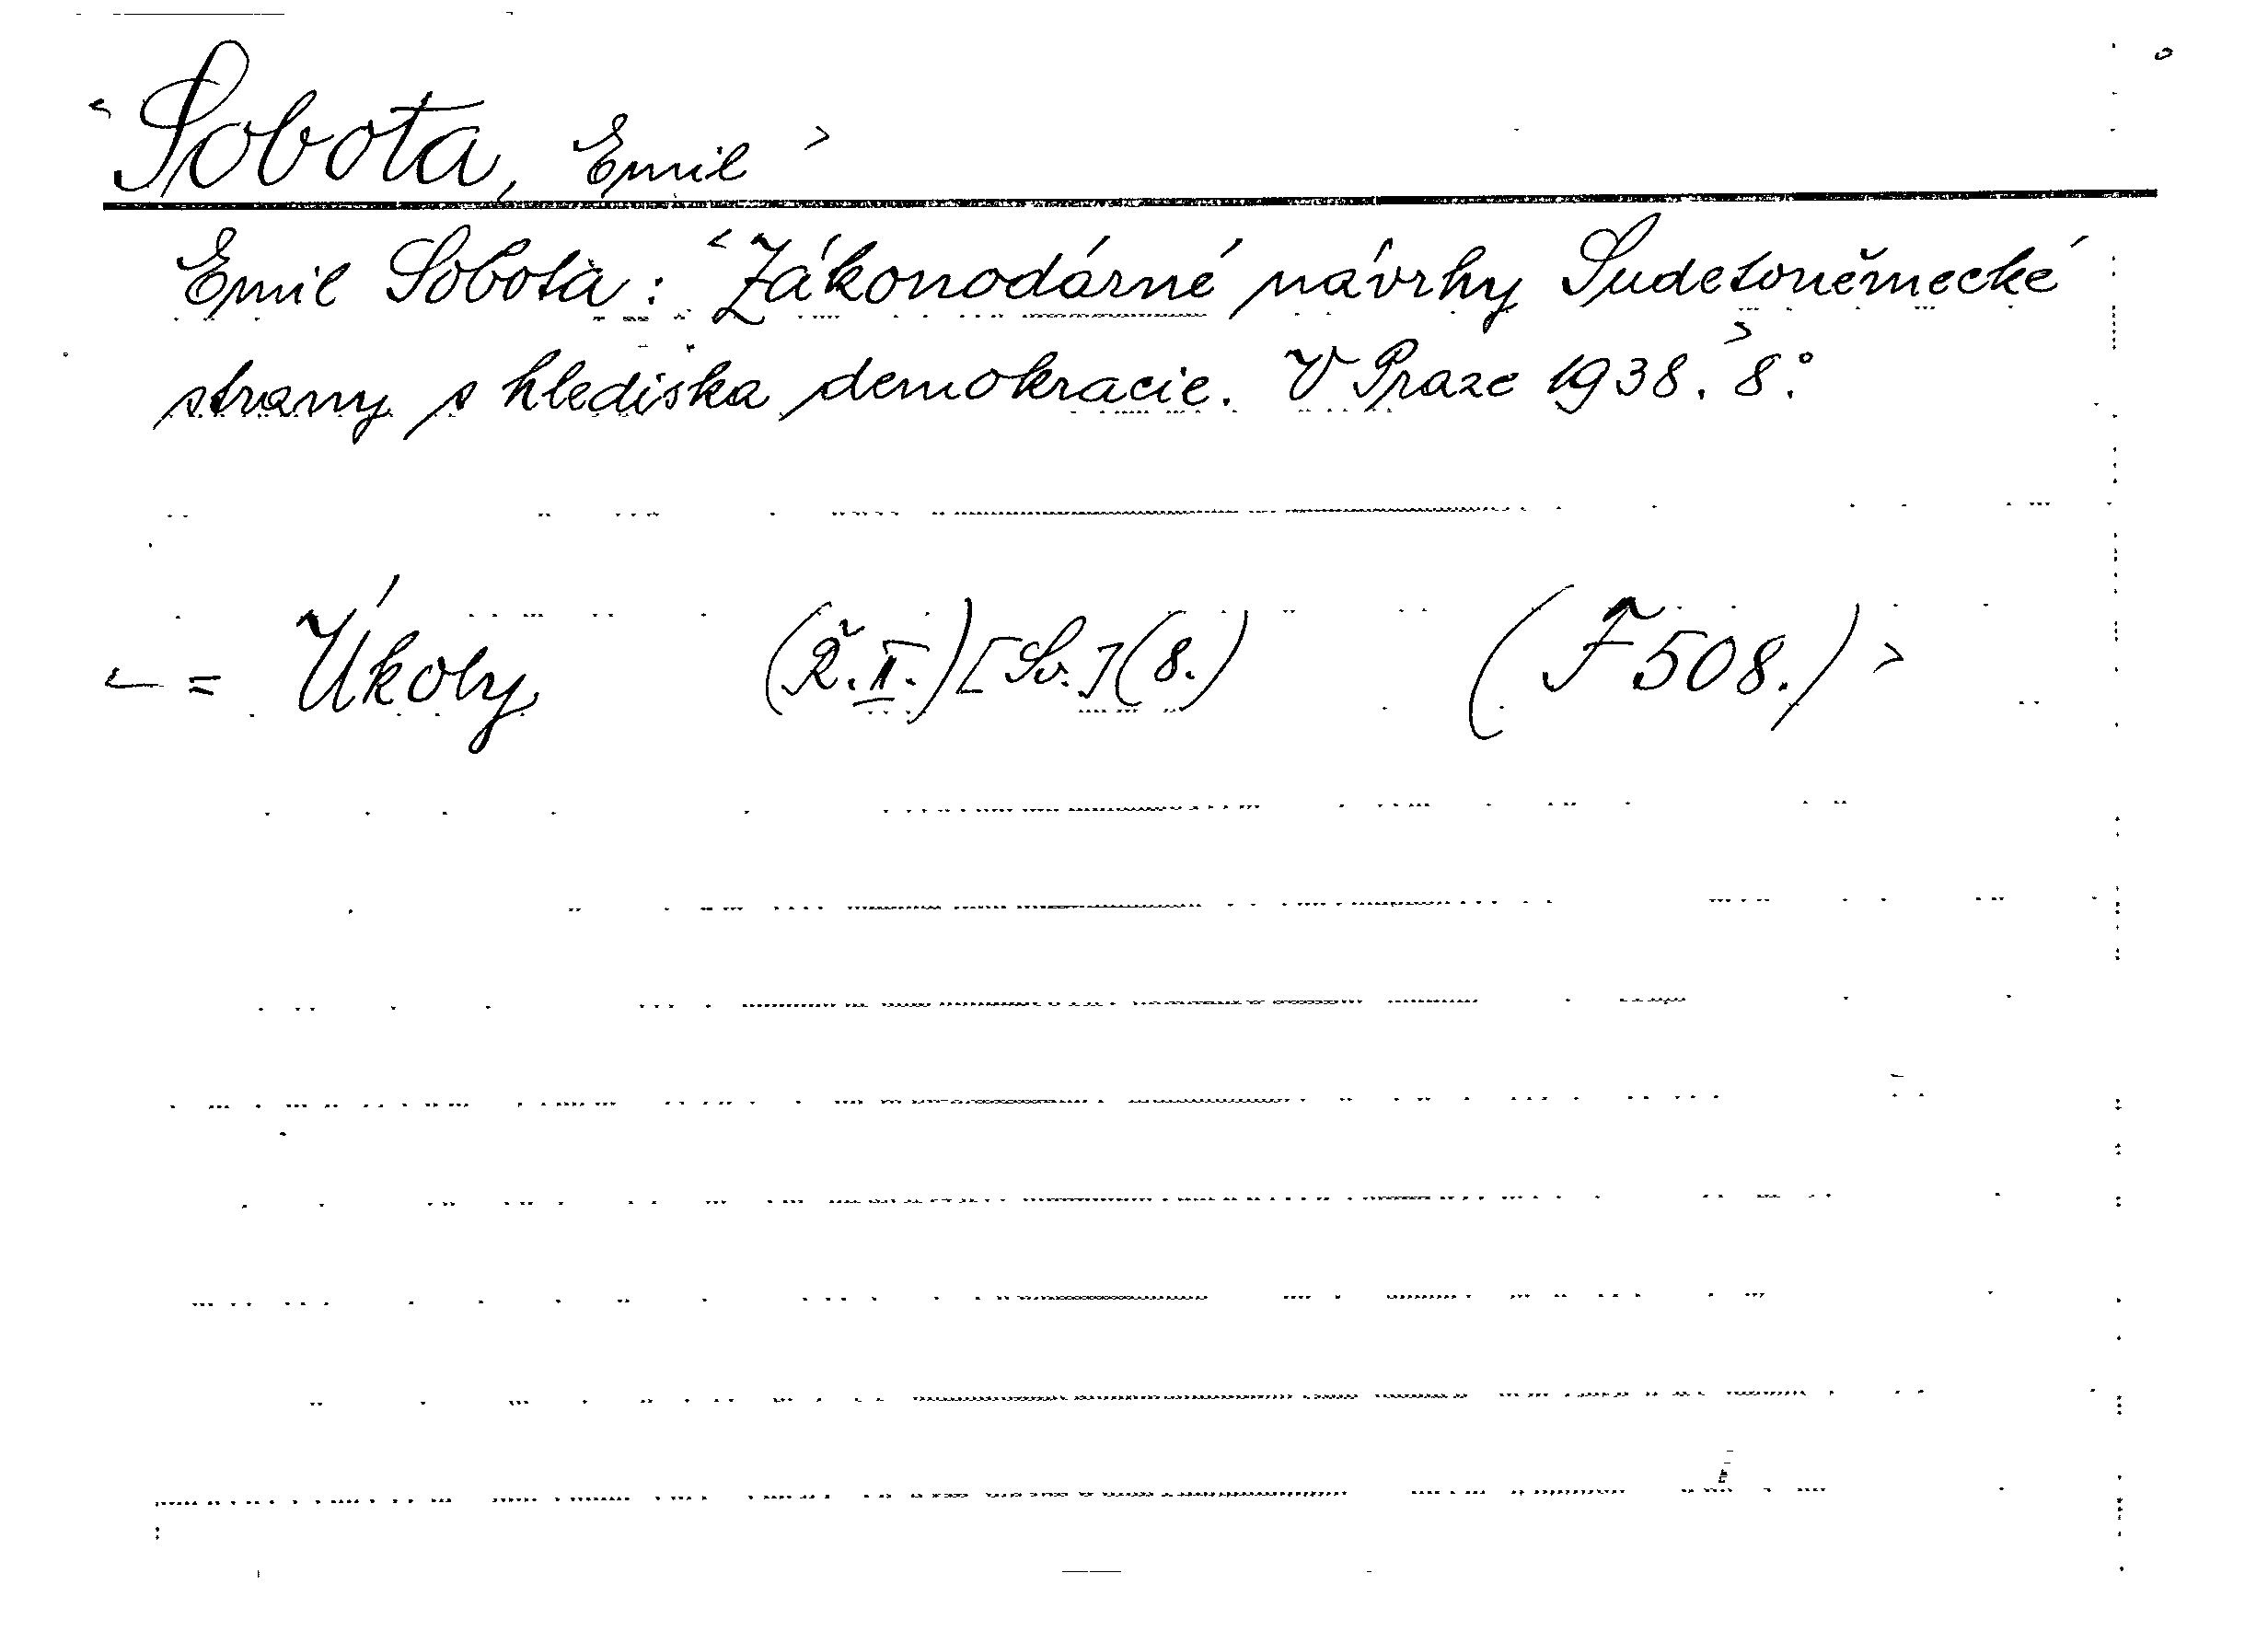 <Sobota, Emil>
Emil Sobota: <Zákonodárné návrhy Sudetoněmecké
strany s hlediska demokracie. V Praze 1938.> 8.°
<— = Úkoly (Ř.II.)[Sv.](8.) (F 508.)>